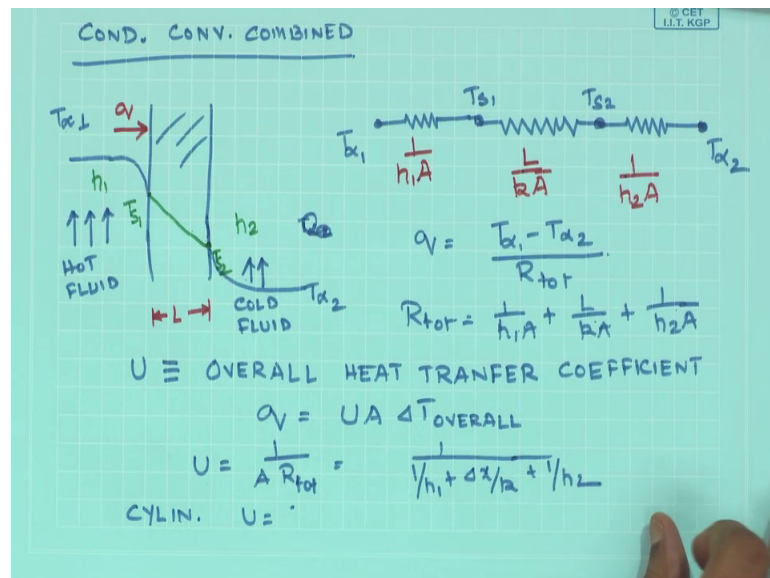 © CET
I.I.T. KGP
COND. CONV. COMBINED
T∞1
q
h1
TS1
HOT
FLUID
L
h2
TS2
COLD
FLUID
T∞2
T∞1
TS1
TS2
T∞2
1/h1A
L/kA
1/h2A
q = (T∞1 - T∞2)/Rtot
Rtot = 1/h1A + L/kA + 1/h2A
U ≡ OVERALL HEAT TRANFER COEFFICIENT
q = UA ΔTOVERALL
U = 1/(A Rtot) = 1/(1/h1 + Δx/k + 1/h2)
CYLIN. U =